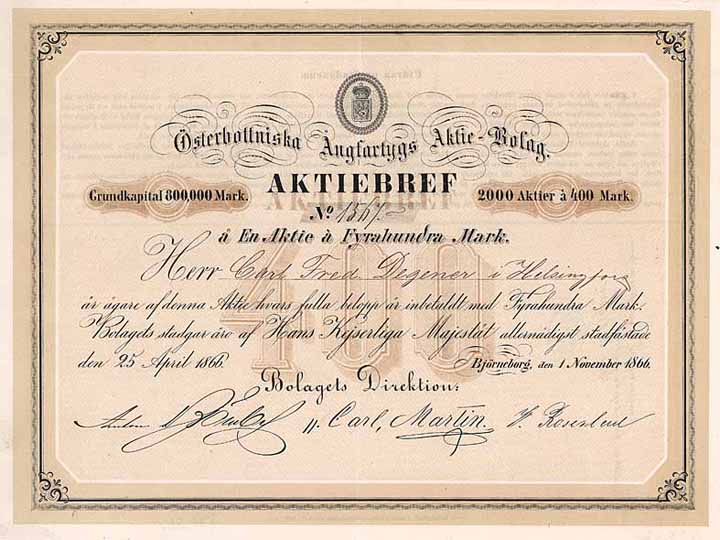 Österbottniska Ångfartygs Aktie-Bolag.
Grundkapital 800,000 Mark.
AKTIEBREF
2000 Aktier à 400 Mark.
No 1567.
å En Aktie à Fyrahundra Mark.
400
Herr Carl Fred Degener i Helsingfors
är ägare af denna Aktie hvars fulla belopp är inbetaldt med Fyrahundra Mark.
Bolagets stadgar äro af Hans Kejserliga Majestät allernådigst stadfästade
den 25 April 1866.
Björneborg, den 1 November 1866.
Bolagets Direktion:
Carl Martin.